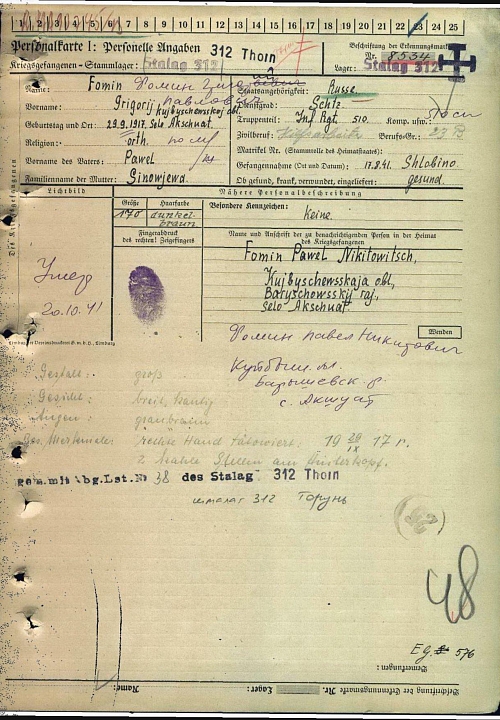 1 2 3 4 5 6 7 8 9 10 11 12 13 14 15 16 17 18 19 20 21 22 23 24 25
Personalkarte I: Personelle Angaben 312 Thorn
Kriegsgefangenen-Stammlager: Stalag 312
Beschriftung der Erkennungsmarke
Nr. 8534
Lager: Stalag 312
Name: Fomin Фомин
Staatsangehörigkeit: Russe.
Vorname: Grigorij Павлович
Dienstgrad: Schtz.
Kujbyschewskoj obl.
Geburtstag und -Ort: 29.9.1917, Selo Akschuat.
Truppenteil: Inf Rgt. 510. Komp. usw.:
Zivilberuf: Berufs-Gr.: 23 B
Religion: orth.
Matrikel Nr. (Stammrolle des Heimatstaates):
Vorname des Vaters: Pawel
Gefangennahme (Ort und Datum): 17.8.41. Shlobino.
Familienname der Mutter: Sinowjewa.
Ob gesund, krank, verwundet, eingeliefert: gesund.
Lichtbild
Nähere Personalbeschreibung
Größe Haarfarbe
170 dunkel-
braun
Besondere Kennzeichen:
Keine.
Fingerabdruck
des rechten! Zeigefingers
Name und Anschrift der zu benachrichtigenden Person in der Heimat
des Kriegsgefangenen
Fomin Pawel Nikitowitsch,
Kujbyschewsskaja obl,
Baryschowsskij raj,
selo Akschuat.
Умер
20.10.41
Wenden
Фомин Павел Никитович
Барышевск. р.
с. Акшуат
Gestalt: groß
Gesicht:
Augen: graubraun
Bes. Merkmale: rechte Hand tätowiert: 19 29/IX 17 г.
gem. mit Abg.Lst.Nr 38 des Stalag 312 Thorn
шталаг 312 Торунь
48
576
Bemerkungen:
Beschriftung der Erkennungsmarke Nr. Lager: Name:
Des Kriegsgefangenen